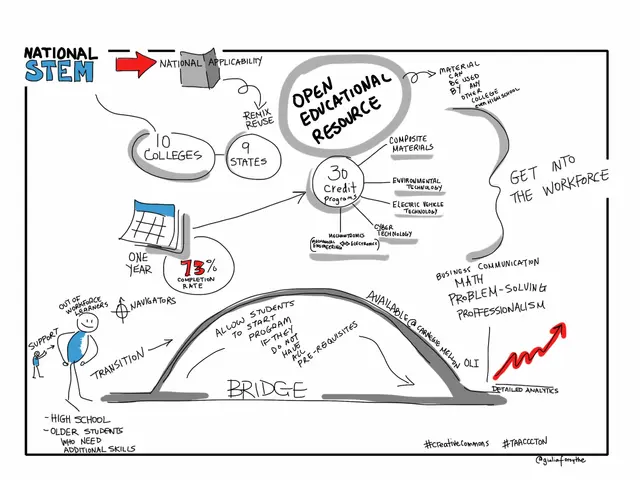 NATIONAL
STEM
NATIONAL APPLICABILITY
REMIX
REUSE
OPEN
EDUCATIONAL
RESOURCE
MATERIAL
CAN
BE USED
BY ANY
OTHER
COLLEGE
EVEN HIGH SCHOOL
10
COLLEGES
9
STATES
30
Credit
programs
COMPOSITE
MATERIALS
ENVIRONMENTAL
TECHNOLOGY
ELECTRIC VEHICLE
TECHNOLOGY
CYBER
TECHNOLOGY
MECHATRONICS
MECHANICAL
ENGINEERING
ELECTRONICS
GET INTO
THE WORKFORCE
ONE
YEAR
73%
COMPLETION
RATE
BUSINESS COMMUNICATION
MATH
PROBLEM-SOLVING
PROFFESSIONALISM
OUT OF
WORKFORCE
LEARNERS
NAVIGATORS
SUPPORT
TRANSITION
ALLOW STUDENTS
TO START
PROGRAM
IF THEY
DO NOT
HAVE
ALL
PRE-REQUISITES
AVAILABLE @ CARNEGIE MELLON
OLI
DETAILED ANALYTICS
BRIDGE
- HIGH SCHOOL
- OLDER STUDENTS
WHO NEED
ADDITIONAL SKILLS
#CreativeCommons #TAACCCTON
@giuliaforsythe